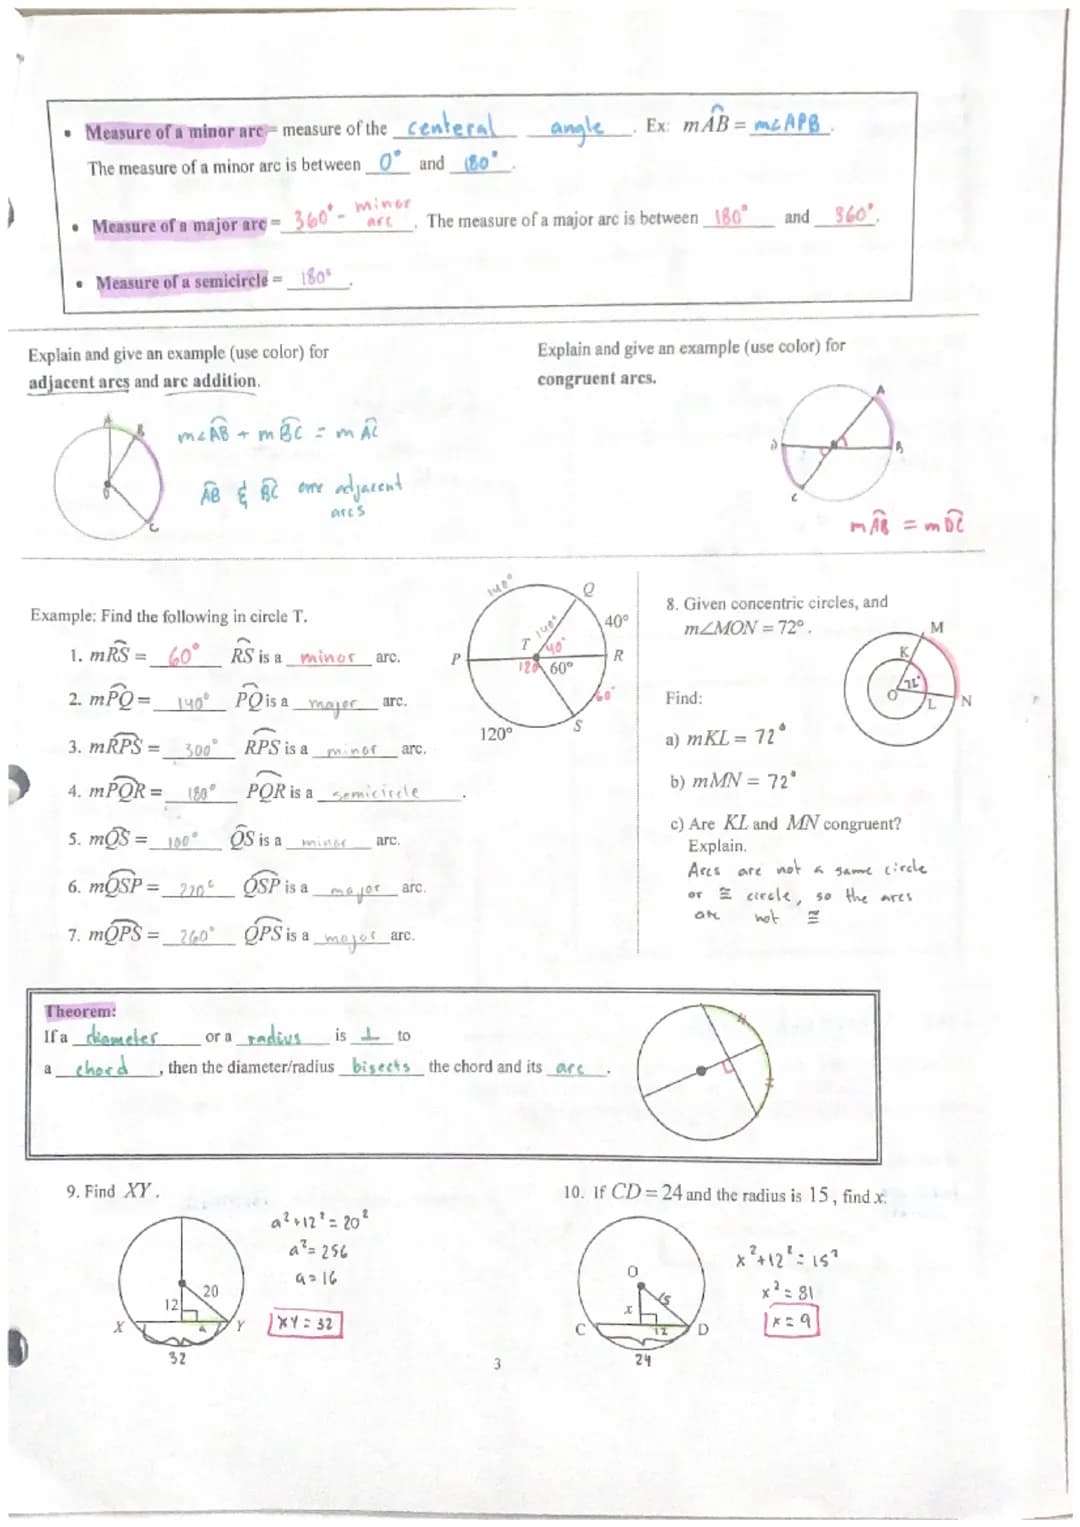 • Measure of a minor arc = measure of the centeral angle. Ex: mAB = m∠APB.
The measure of a minor arc is between 0° and 180°.
• Measure of a major arc = 360° - minor arc. The measure of a major arc is between 180° and 360°.
• Measure of a semicircle = 180°.
Explain and give an example (use color) for
adjacent arcs and arc addition.
Explain and give an example (use color) for
congruent arcs.
A
B
O
C
m∠AB + mBC = mAC
AB & BC are adjacent
arcs
A
D
B
C
mAB = mDC
Example: Find the following in circle T.
1. mRS = 60° RS is a minor arc.
2. mPQ = 140° PQ is a major arc.
3. mRPS = 300° RPS is a minor arc.
4. mPQR = 180° PQR is a semicircle.
5. mQS = 100° QS is a minor arc.
6. mQSP = 220° QSP is a major arc.
7. mQPS = 260° QPS is a major arc.
140°
Q
40°
T 140° 40°
P
R
120 60°
60°
120°
S
8. Given concentric circles, and
m∠MON = 72°.
M
K
72°
O
L
N
Find:
a) mKL = 72°
b) mMN = 72°
c) Are KL and MN congruent?
Explain.
Arcs are not a same circle
or ≅ circle, so the arcs
are not ≅
Theorem:
If a diameter or a radius is ⊥ to
a chord, then the diameter/radius bisects the chord and its arc.
9. Find XY.
20
12
X
a
Y
32
a² + 12² = 20²
a² = 256
a = 16
XY = 32
10. If CD = 24 and the radius is 15, find x.
O
15
x
C
12
D
24
x² + 12² = 15²
x² = 81
x = 9
3